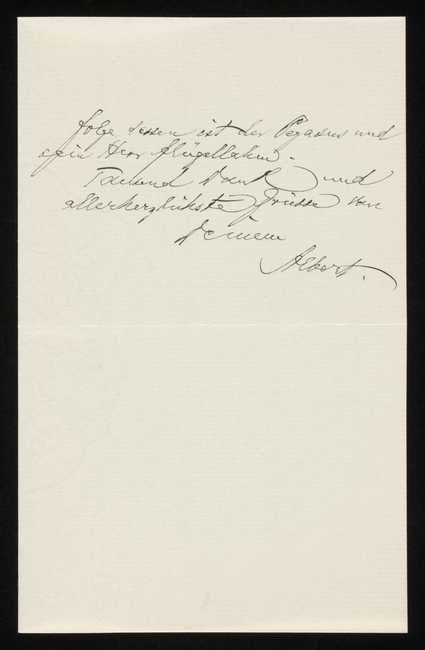 folge dessen ist der Pegasus und
sein Herr flügellahm.
Tausend Dank und
allerherzlichste Grüsse von
Deinem
Albert.